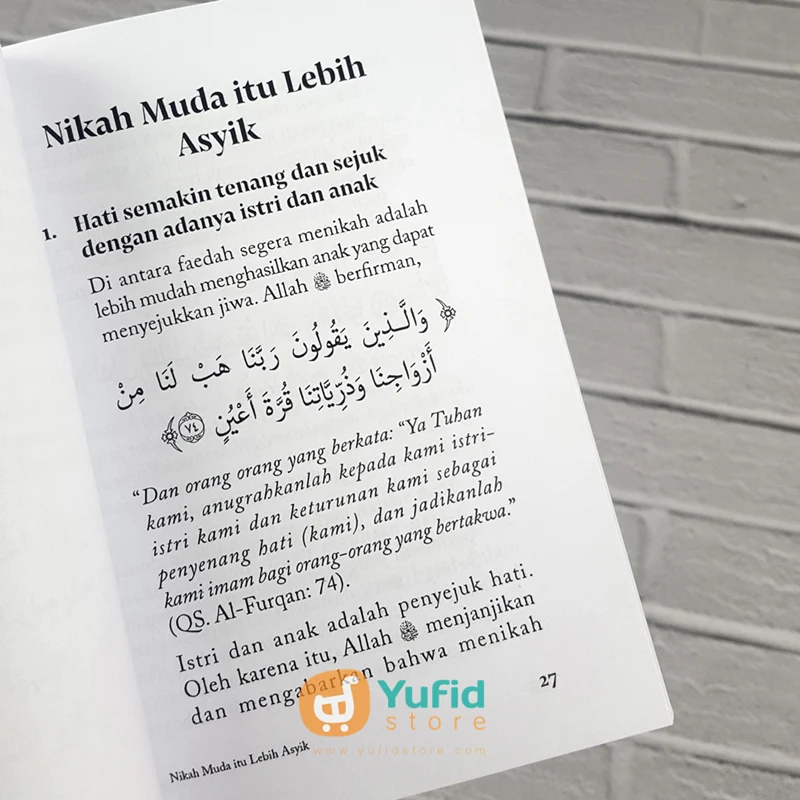 Nikah Muda itu Lebih
Asyik
1. Hati semakin tenang dan sejuk
dengan adanya istri dan anak
Di antara faedah segera menikah adalah
lebih mudah menghasilkan anak yang dapat
menyejukkan jiwa. Allah ﷻ berfirman,
﴿ وَالَّذِينَ يَقُولُونَ رَبَّنَا هَبْ لَنَا مِنْ
أَزْوَاجِنَا وَذُرِّيَّاتِنَا قُرَّةَ أَعْيُنٍ ٧٤ ﴾
“Dan orang orang yang berkata: “Ya Tuhan
kami, anugrahkanlah kepada kami istri-
istri kami dan keturunan kami sebagai
penyenang hati (kami), dan jadikanlah
kami imam bagi orang-orang yang bertakwa.”
(QS. Al-Furqan: 74).
Istri dan anak adalah penyejuk hati.
Oleh karena itu, Allah ﷻ menjanjikan
dan mengabarkan bahwa menikah
27
Nikah Muda itu Lebih Asyik
Yufid
store
www.yufidstore.com